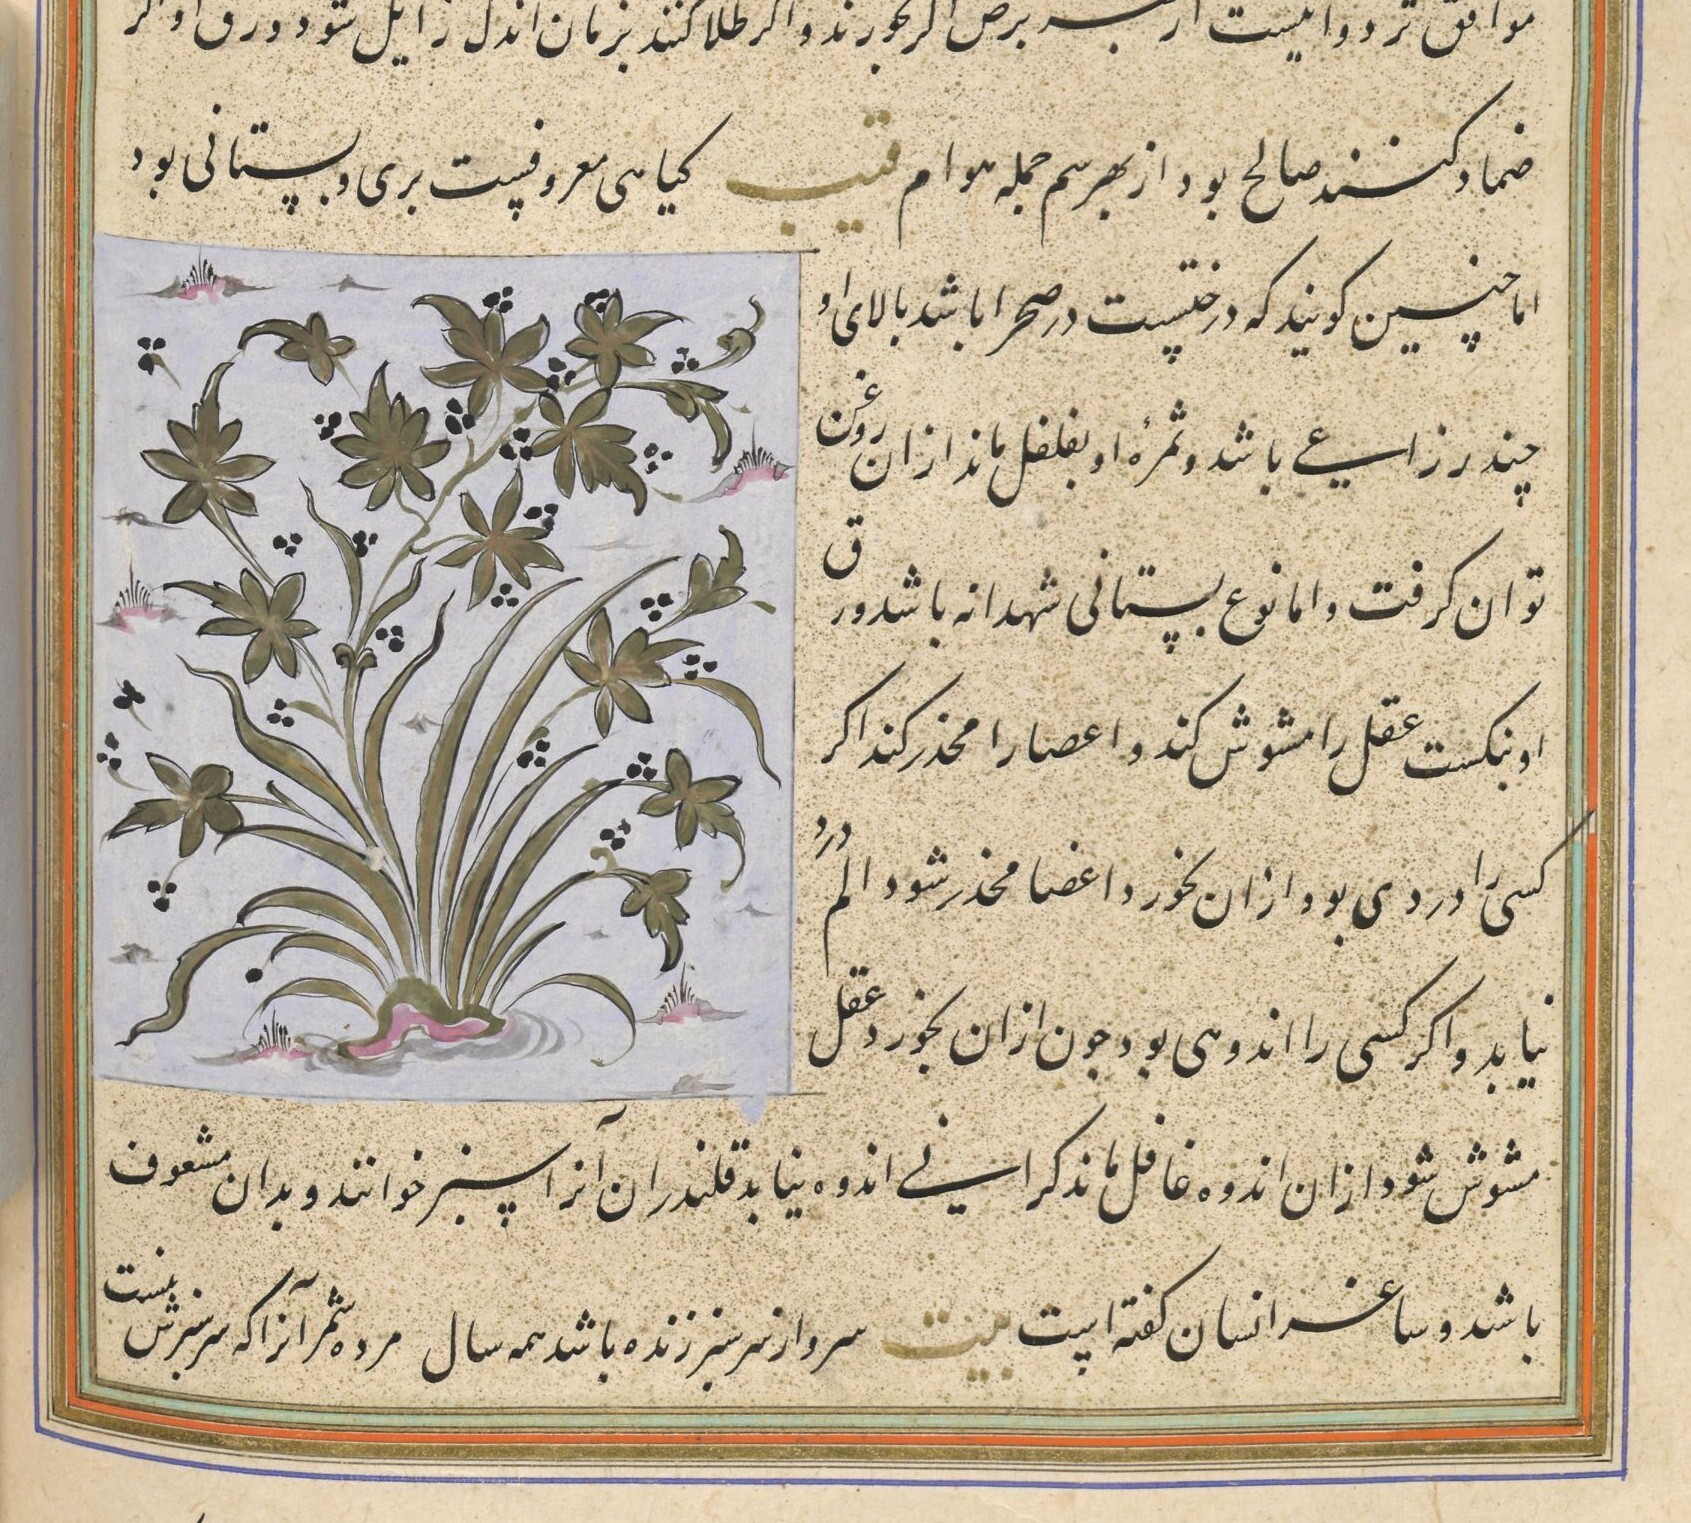 موافق تر دوائیست از بهر برص اگر بخورند و اگر طلا کنند بزمان اندک زایل شود و ورق او اگر
ضماد کنند صالح بود از بهر سم جمله هوام قنب کیاهی معروفست بری و بستانی بود
اما چنین کویند که درختیست در صحرا باشد بالای او
چند ذراعی باشد و ثمرهٔ او بفلفل ماند از آن روغن
توان کرفت و اما نوع بستانی شهدانه باشد ورق
او بنکست عقل را مشوش کند و اعصا را مخدر کند اکر
کسی را دردی بود از آن بخورد اعضا مخدر شود الم درد
نیابد و اکر کسی را اندوهی بود جون از آن بخورد عقل
مشوش شود از آن اندوه غافل ماند کرانی اندوه نیابد قلندران آنرا اسبز خوانند و بدان مشعوف
باشد و ساغر انسان کفته است بیت سرو از سر سبز زنده باشد همه سال مرده شمر آنرا که سر سبزش نیست